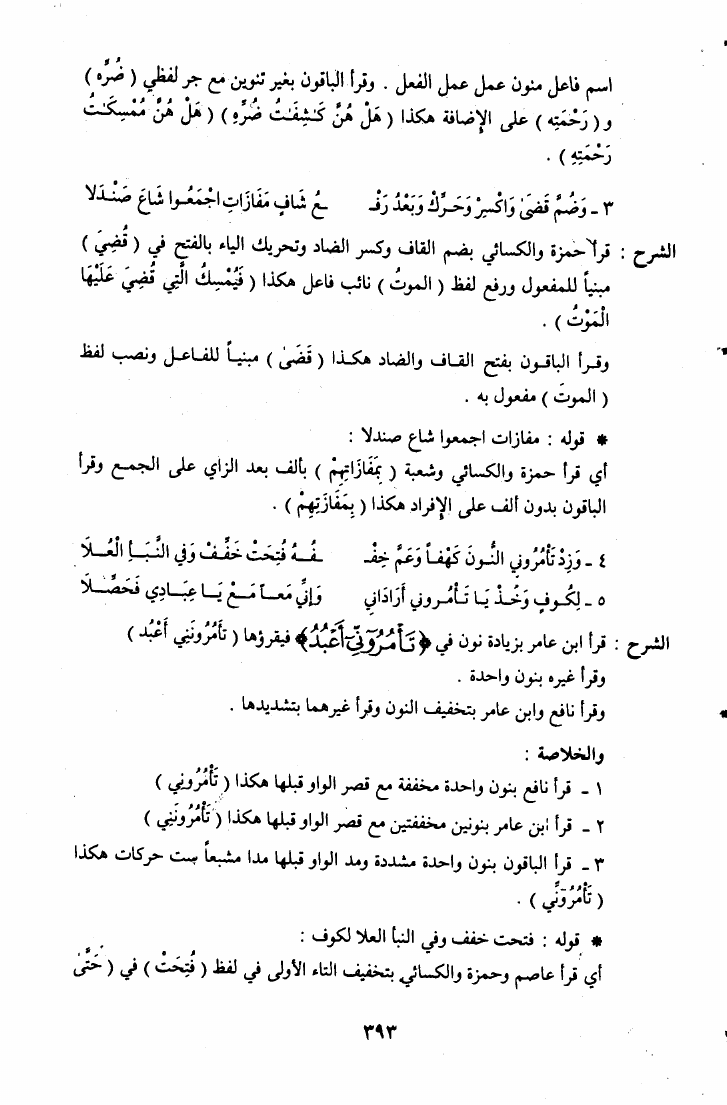 اسم فاعل منون عمل عمل الفعل . وقرأ الباقون بغير تنوين مع جر لفظي ( ضُرِّه )
و ( رَحْمَتِهِ ) على الإضافة هكذا ( هَلْ هُنَّ كَـٰشِفَـٰتُ ضُرِّهِ ) ( هَلْ هُنَّ مُمْسِكَـٰتُ
رَحْمَتِهِ ) .
٣ ـ وَضُمَّ قَضَىٰ وَاكْسِرْ وَحَرِّكْ وَبَعْدُ رَفْـ ـعُ شَافٍ مَفَازَاتِ اجْمَعُوا شَاعَ صَنْدَلَا
الشرح : قرأ حمزة والكسائي بضم القاف وكسر الضاد وتحريك الياء بالفتح في ( قُضِيَ )
مبنياً للمفعول ورفع لفظ ( الموتُ ) نائب فاعل هكذا ( فَيُمْسِكُ الَّتِي قُضِيَ عَلَيْهَا
الْمَوْتُ ) .
وقرأ الباقون بفتح القاف والضاد هكذا ( قَضَىٰ ) مبنياً للفاعل ونصب لفظ
( الموتَ ) مفعول به .
* قوله : مفازات اجمعوا شاع صندلا :
أي قرأ حمزة والكسائي وشعبة ( بِمَفَازَاتِهِمْ ) بألف بعد الزاي على الجمع وقرأ
الباقون بدون ألف على الإفراد هكذا ( بِمَفَازَتِهِمْ ) .
٤ ـ وَزِدْ تَأْمُرُوني النُّونَ كَهْفاً وَعَمَّ خِفْـ ـفُهُ فُتِحَتْ خَفِّفْ وَفي النَّبَأِ الْعُلَا
٥ ـ لِكُوفٍ وَخُذْ يَا تَأْمُروني أَرَادَاني وَإِنِّي مَعاً مَعْ يَا عِبَادِي فَحَصِّلَا
الشرح : قرأ ابن عامر بزيادة نون في ﴿ تَأْمُرُوٓنِّيٓ أَعْبُدُ ﴾ فيقرؤها ( تَأْمُرُونَنِي أَعْبُد )
وقرأ غيره بنون واحدة .
وقرأ نافع وابن عامر بتخفيف النون وقرأ غيرهما بتشديدها .
والخلاصة :
١ ـ قرأ نافع بنون واحدة مخففة مع قصر الواو قبلها هكذا ( تَأْمُرُونِي )
٢ ـ قرأ ابن عامر بنونين مخففتين مع قصر الواو قبلها هكذا ( تَأْمُرُونَنِي )
٣ ـ قرأ الباقون بنون واحدة مشددة ومد الواو قبلها مدا مشبعاً ست حركات هكذا
( تَأْمُرُونِّي ) .
* قوله : فتحت خفف وفي النبأ العلا لكوف :
أي قرأ عاصم وحمزة والكسائي بتخفيف التاء الأولى في لفظ ( فُتِحَتْ ) في ( حَتَّىٰ
٣٩٣